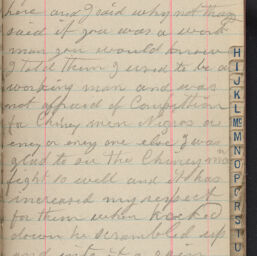 here and I said why not they
said if you was a work
man you would know
I Told Them I used to be a
working man and was
not affraid of Compitition
for Chiney men Negros or
eney or eney one else I was
glad to see the Chineyman
fight so well and it has
increased my respect
for them when knocked
down he scrambled up
and into it again
H
I
J
K
L
Mc
M
N
O
P
Q
R
S
T
U